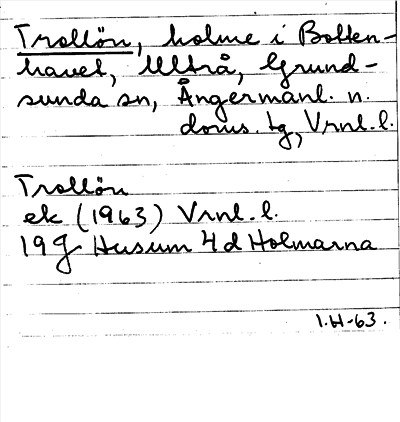 Trollön, holme i Botten-
havet, Ulvå, Grund-
sunda sn, Ångermanl. n.
doms. tg, Vrnl. l.
Trollön
ek (1963) Vrnl. l.
19 g Husum 4 d Holmarna
I.H-63.